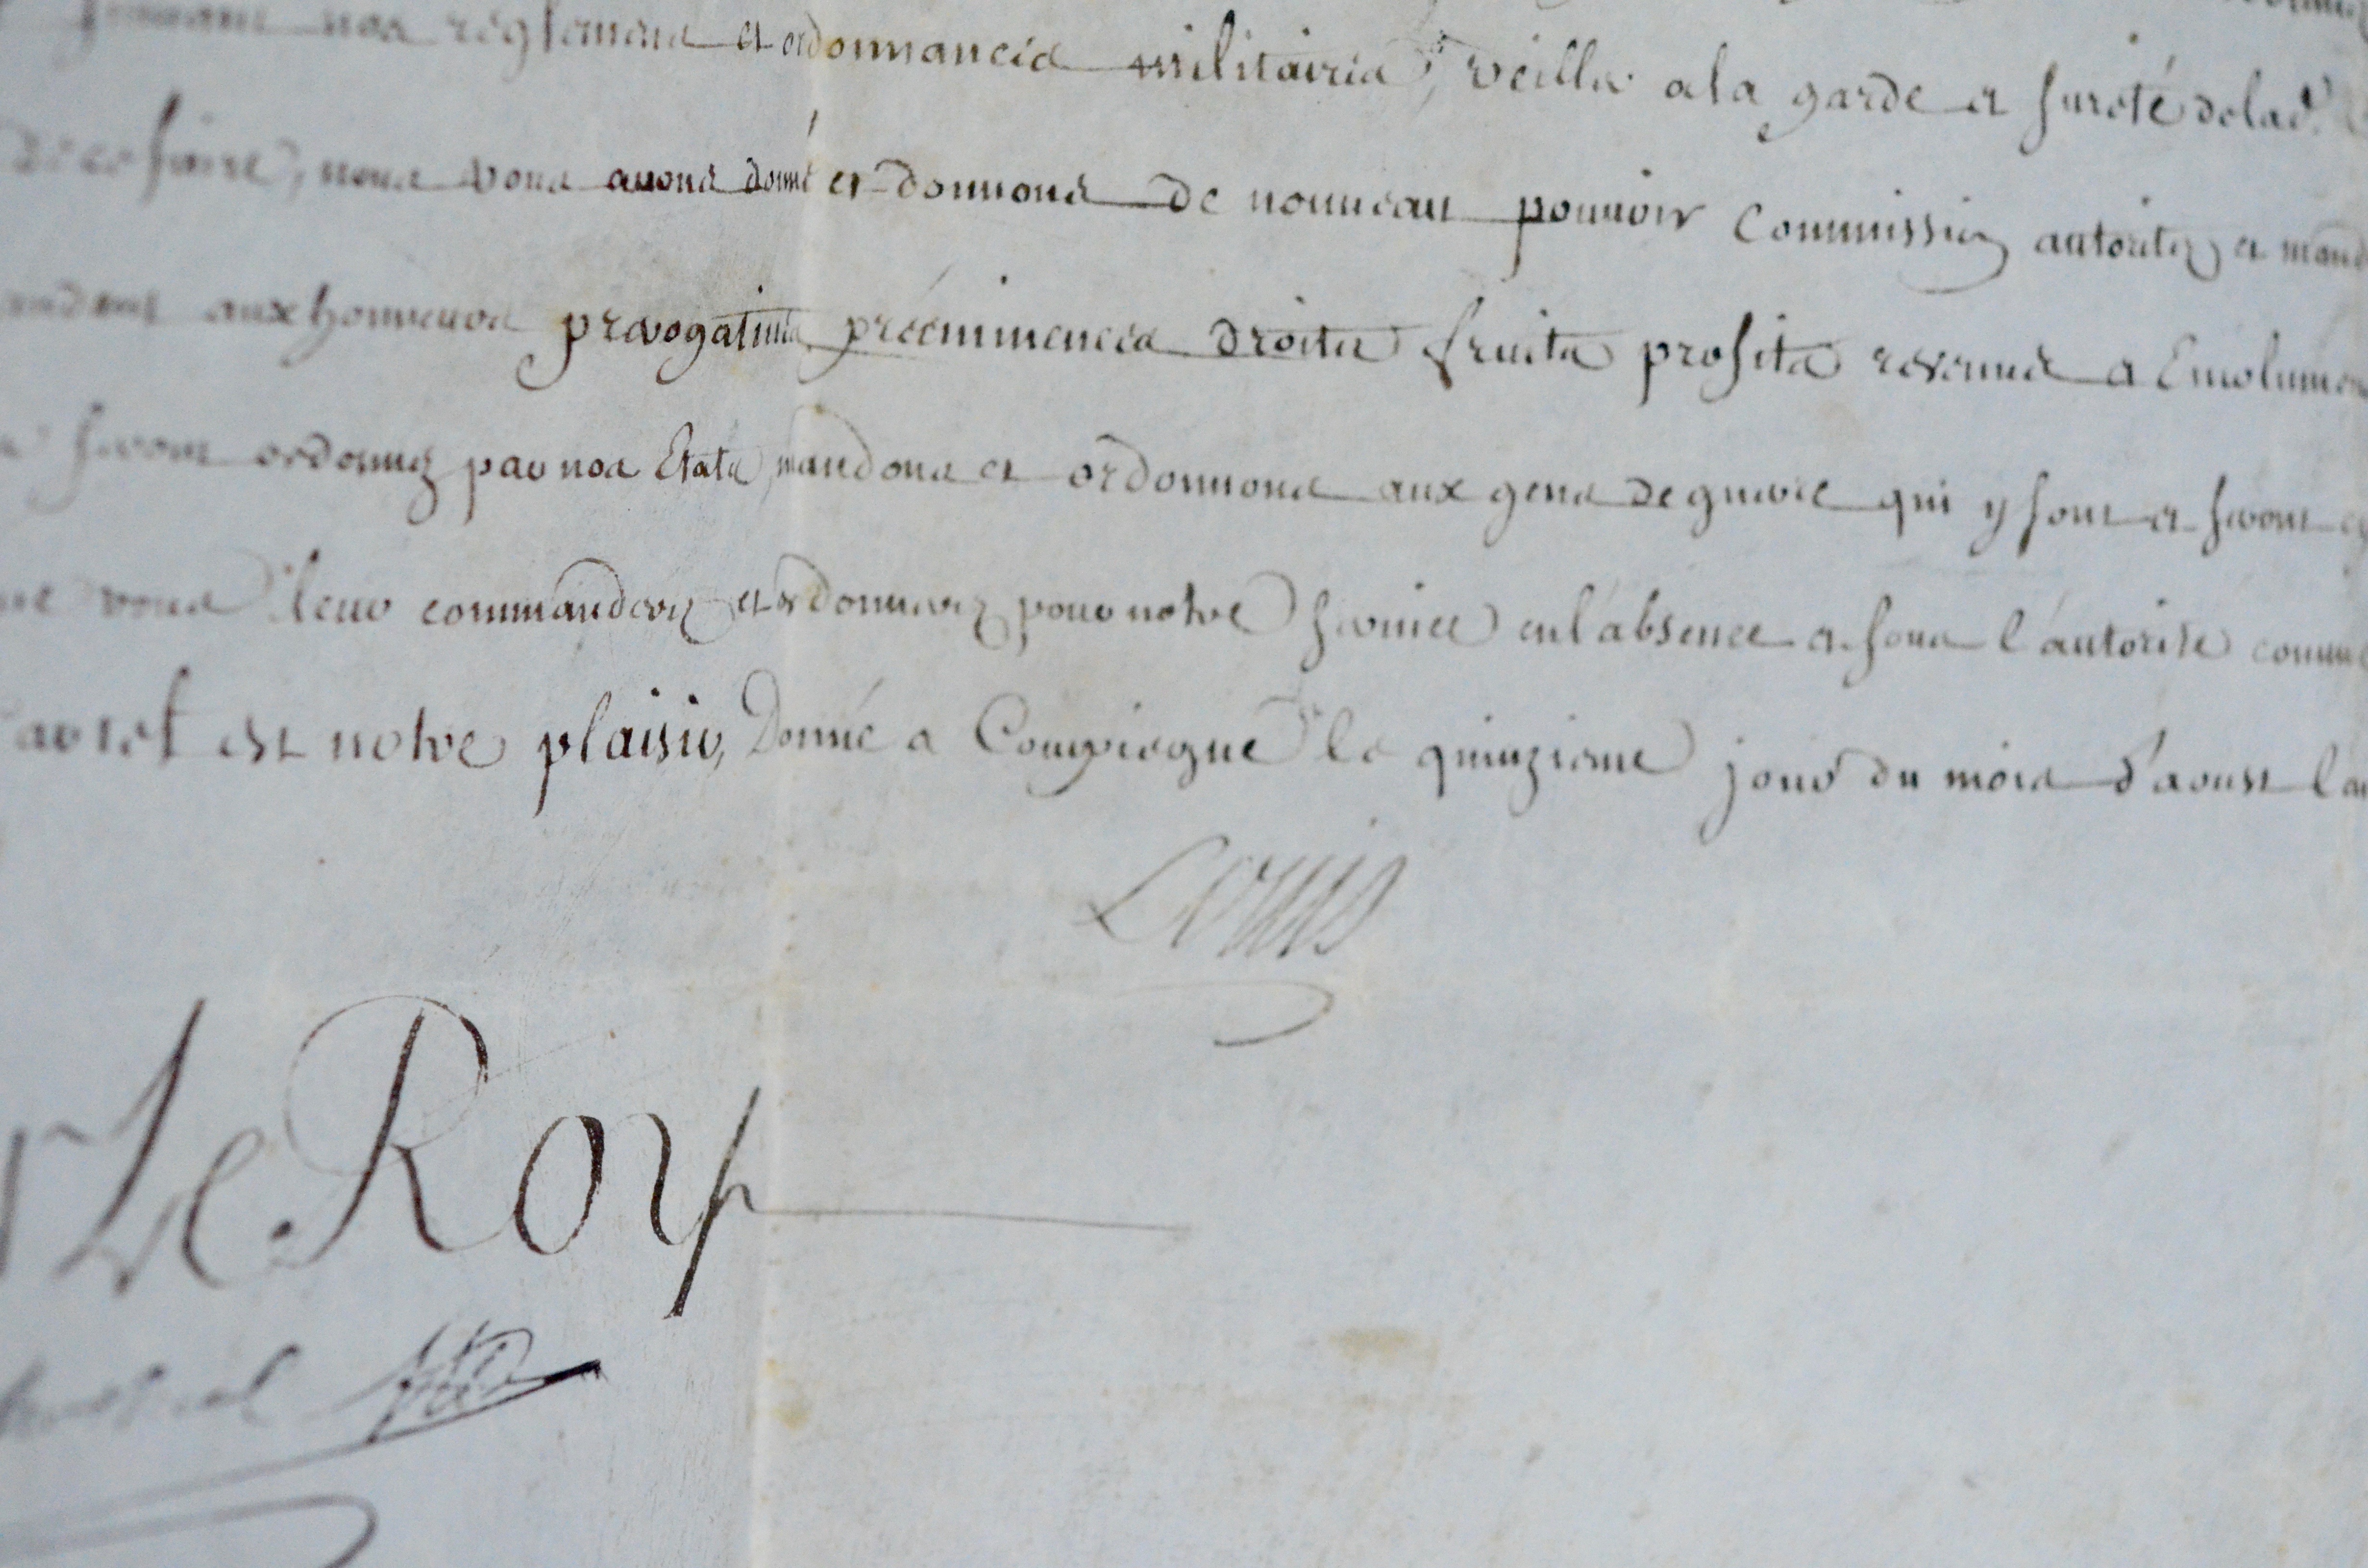 suivant nos reglemens et ordonnances militaires, veiller a la garde et sureté de lad.
de ce faire, nous vous avons donné et donnons de nouveau pouvoir Commission autorité et mand
aux honneurs prerogatives prééminences droits fruits profits revenus et Emolumen
seront ordonnez par nos Etats, mandons et ordonnons aux gens de guerre qui y sont et seront
vous leur commanderez et ordonnerez pour notre service en l'absence et sous l'autorité comm
car tel est notre plaisir, Donné a Compiegne le quinzieme jour du mois d'aoust l'an
Louis
Le Roy